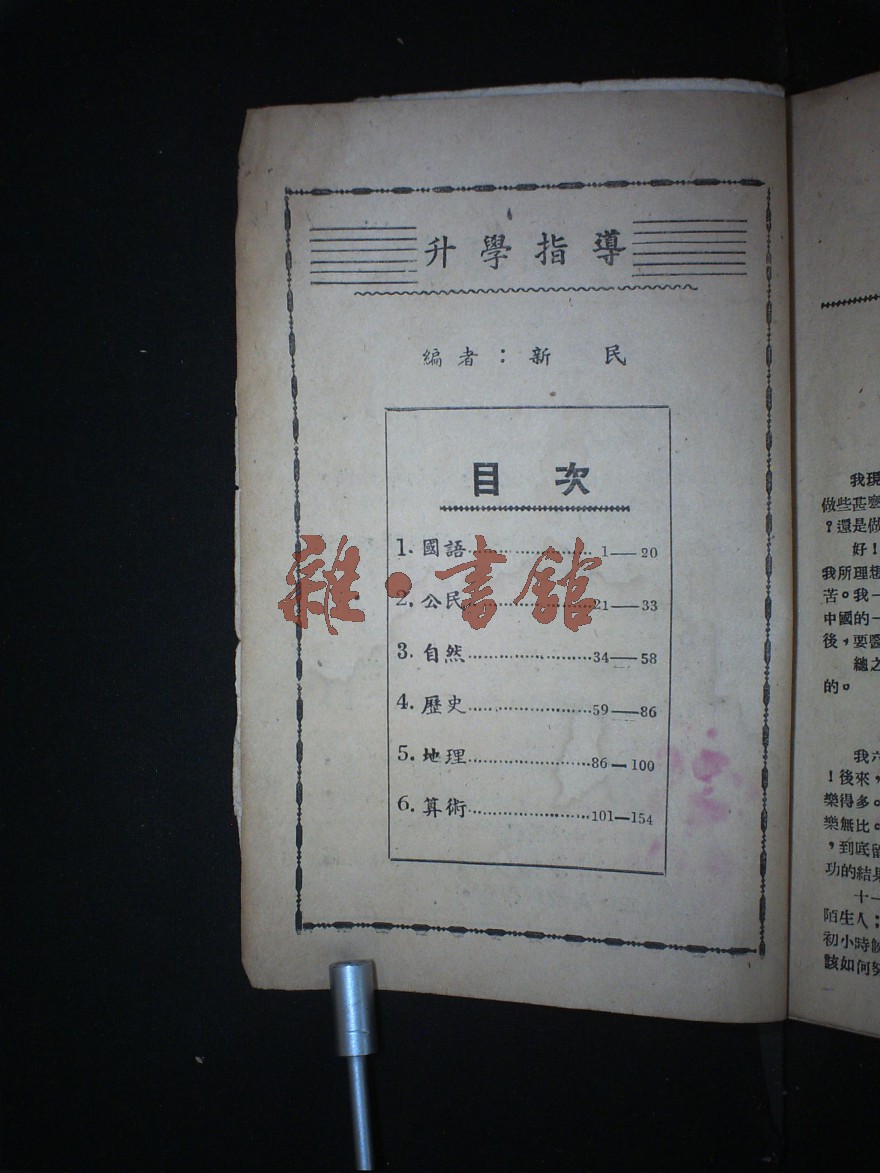 升學指導
編者：新 民
目 次
1. 國語……………… 1—20
2. 公民………………21—33
3. 自然………………34—58
4. 歷史………………59—86
5. 地理………………86—100
6. 算術………………101—154
雜·書館
我現
做些甚麼
？還是做
好！
我所理想
苦。我一
中國的一
後，要醫
總之
的。
我六
！後來，
樂得多。
樂無比。
，到底留
功的結果
十一
陌生人；
初小時候
該如何努